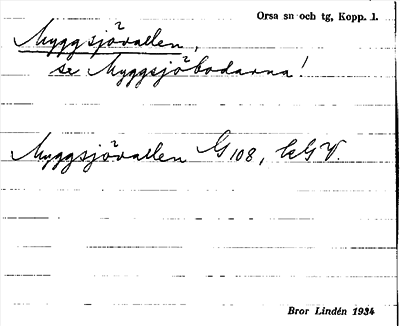 Orsa sn och tg, Kopp. l.
Myggsjövallen,
se Myggsjöbodarna!
Myggsjövallen G 108,
Bror Lindén 1934